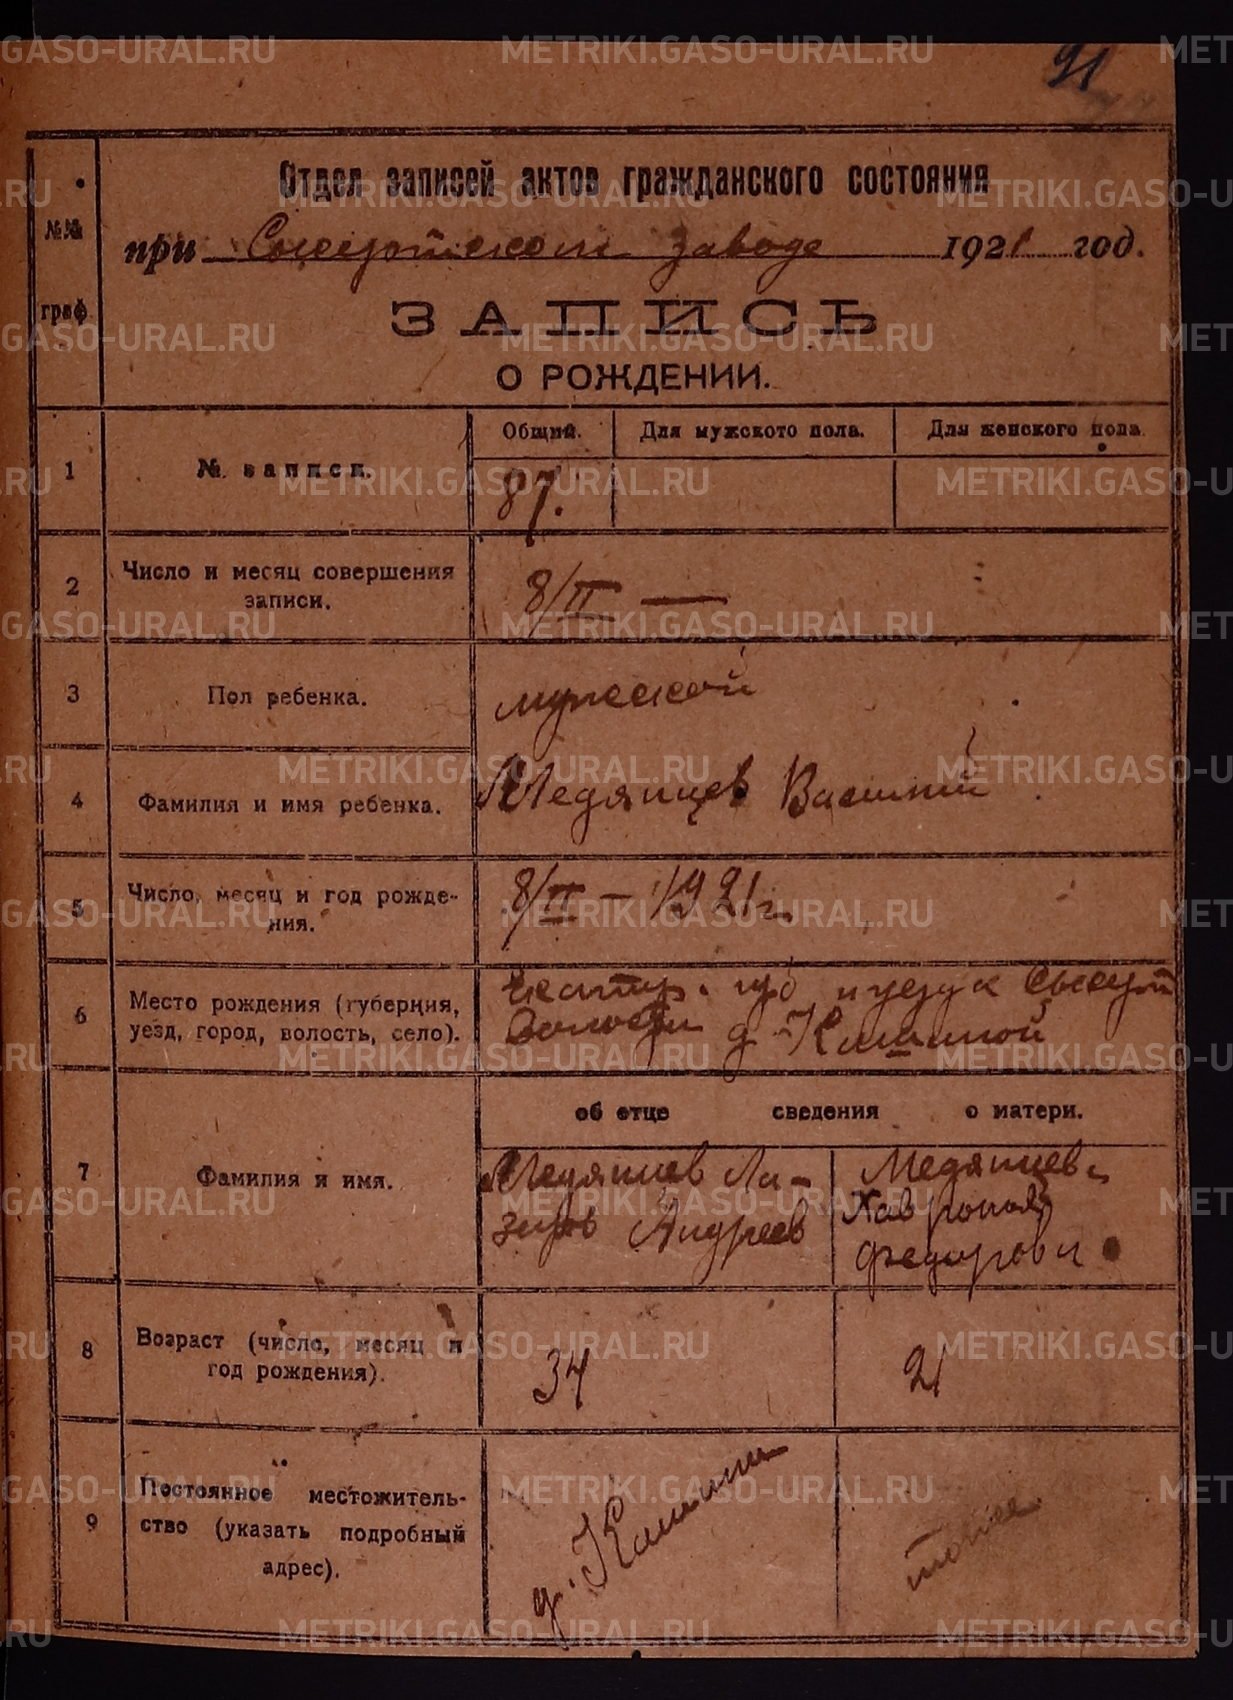 91
Отдел записей актов гражданского состояния
при Сысертском заводе 1921 год.
№№ граф.
ЗАПИСЬ
О РОЖДЕНИИ.
Общий. Для мужского пола. Для женского пола
1 № записи. 87.
2 Число и месяц совершения записи. 8/II —
3 Пол ребенка. мужской
4 Фамилия и имя ребенка. Медянцев Василий
5 Число, месяц и год рожде-
ния. 8/II – 1921 г.
6 Место рождения (губерния,
уезд, город, волость, село). Екатер. губ и уезда Сысерт
волости д. Кашиной
об отце сведения о матери.
7 Фамилия и имя. Медянцев Ла-
зарь Андреев
Медянцева
Хаврония
Федоровна
8 Возраст (число, месяц и
год рождения). 34 21
9 Постоянное местожитель-
ство (указать подробный
адрес). д. Кашина тоже
METRIKI.GASO-URAL.RU